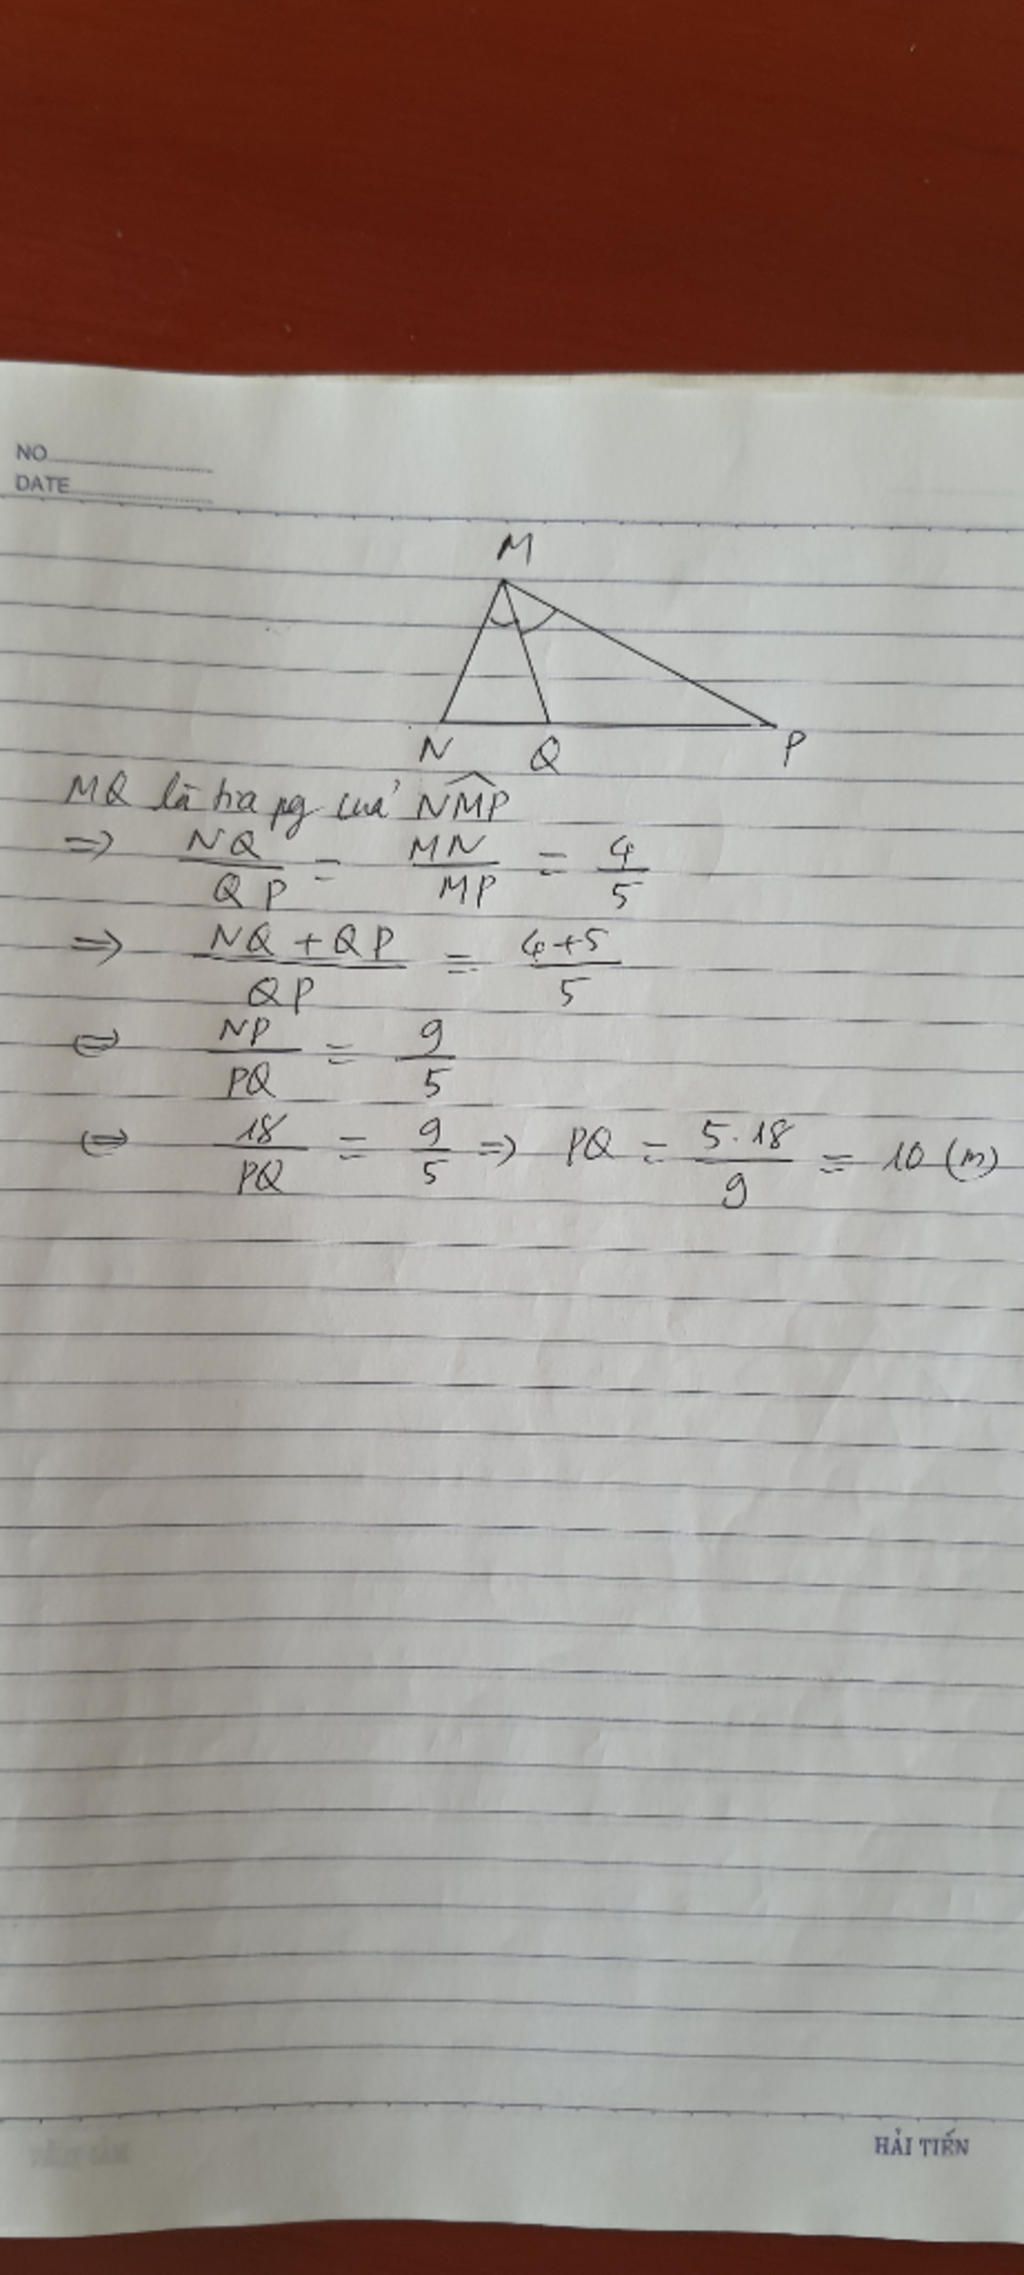 NO
DATE
M
N Q P
MQ là tia pg của NMP
=> NQ/QP = MN/MP = 4/5
=> NQ+QP/QP = 4+5/5
<=> NP/PQ = 9/5
<=> 18/PQ = 9/5 => PQ = 5.18/9 = 10 (m)
HẢI TIẾN